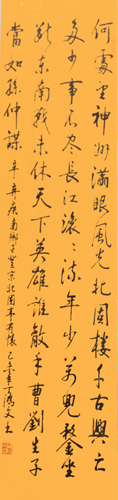 何處望神州滿眼風光北固樓千古興亡
多少事悠悠不盡長江滾滾流年少萬兜鍪坐
斷東南戰未休天下英雄誰敵手曹劉生子
當如孫仲謀 辛棄疾南鄉子登京口北固亭有懷